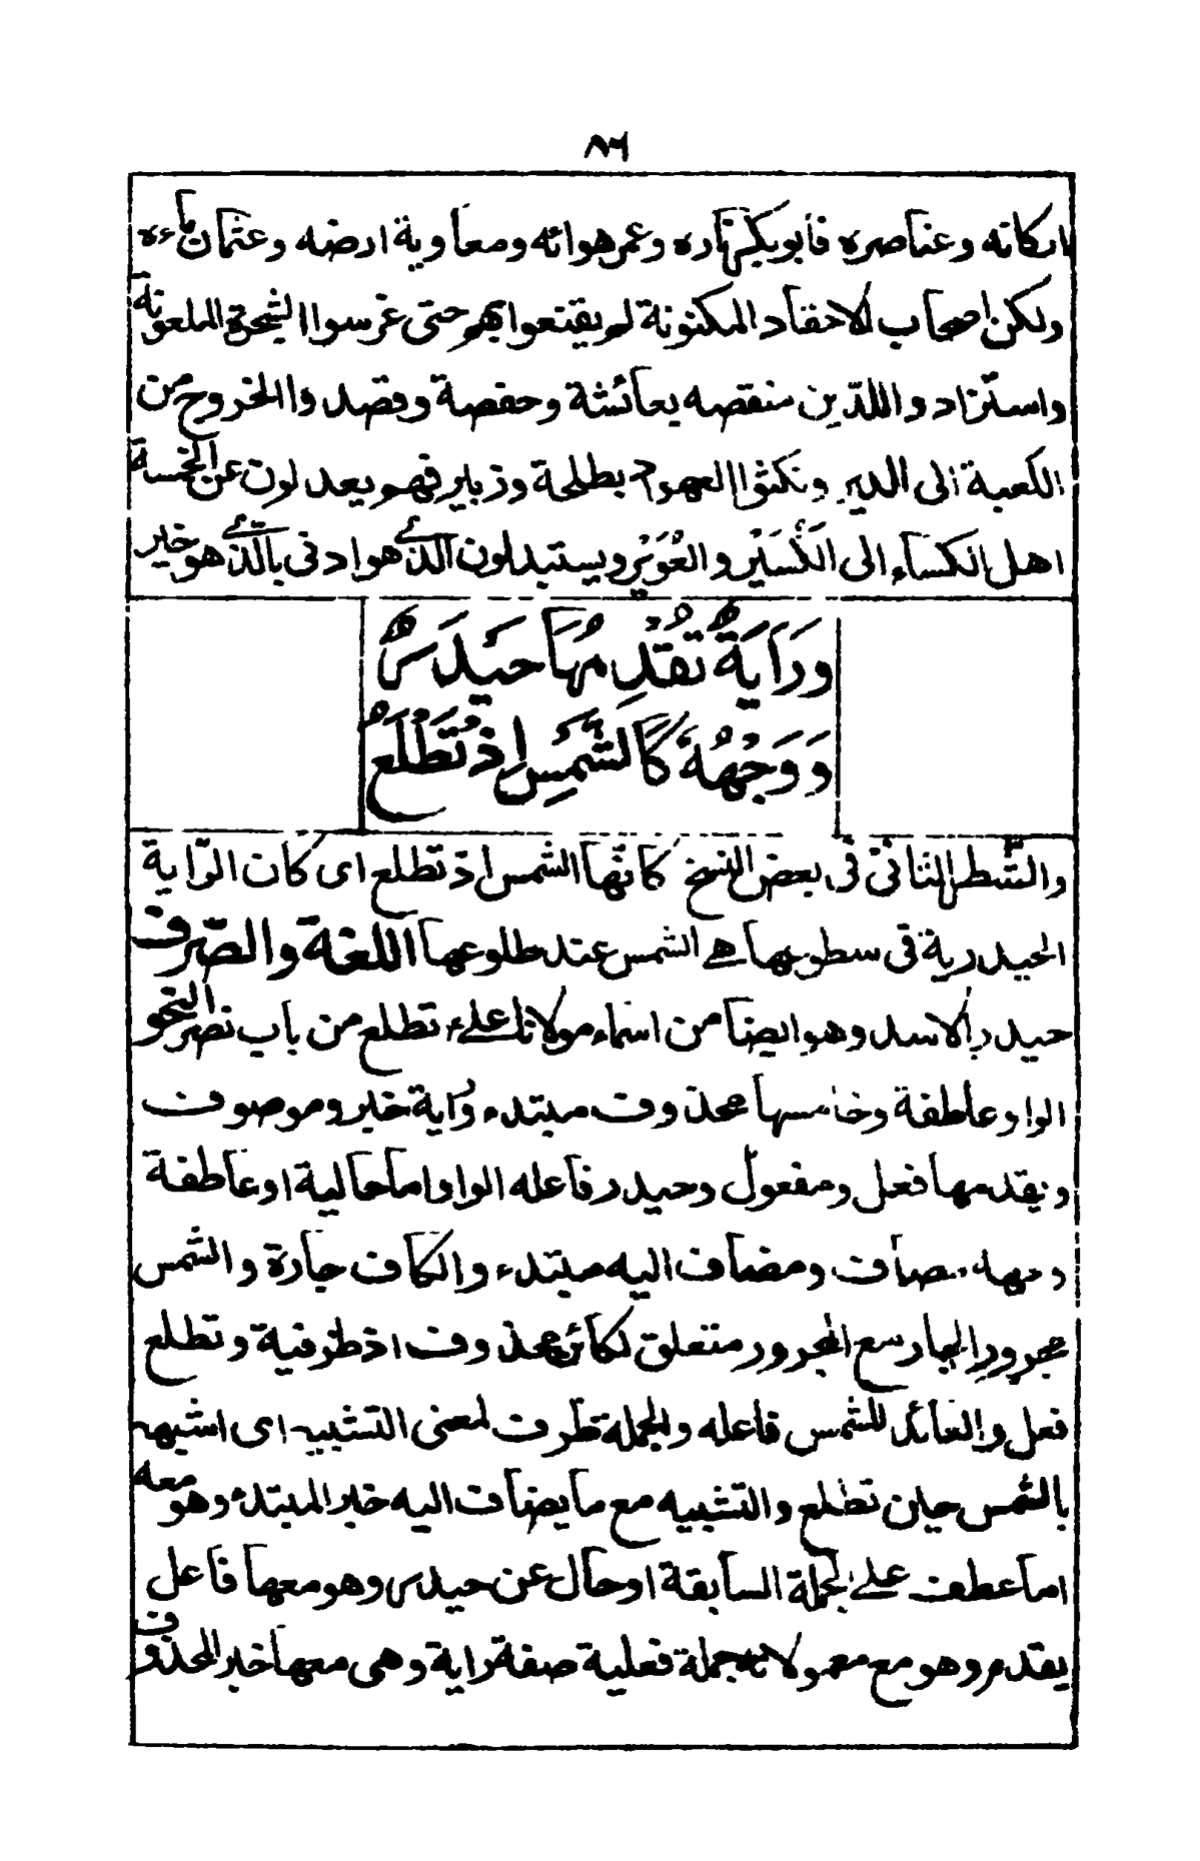 ٨٦
باركانه وعناصره فابوبكر ناره وعمر هوائه ومعاوية ارضه وعثمان ماءه
ولكن اصحاب الاحقاد المكنونة لم يقتعوا بهم حتى غرسوا الشجرة الملعونة
واستزادوا اللذين منقصه بعائشة وحفصة وقصدوا الخروج من
الكعبة الى الدير ونكثوا العهود بطلحة وزبير فهم يعدلون عن الخمسة
اهل الكساء الى الكسير والعوير ويستبدلون الذي هو ادنى بالذي هو خير
وَرَايَةٌ تُقْدِمُهَا حَيْدَرٌ
وَوَجْهُهُ كَالشَّمْسِ اِذْ تَطْلَعُ
والشّطر الثانى فى بعض النسخ كانّها الشمس اذ تطلع اى كان الرّاية
الحيدرية فى سطوعها هي الشمس عند طلوعها اللغة والصّرف
حيدر الاسد وهو ايضا من اسماء مولانا علىؑ تطلع من باب نصر النحو
الواو عاطفة وخامسها محذوف مبتدء وراية خبر وموصوف
ويقدمها فعل ومفعول وحيدر فاعله الواو اما حالية او عاطفة
وجهه مضاف ومضاف اليه مبتدء والكاف جارة والشمس
مجرور الجار مع المجرور متعلق لكائن محذوف اذ ظرفية وتطلع
فعل والعائد للشمس فاعله والجملة ظرف لمعنى التشبيه اى اشبهه
بالشمس حين تطلع والتشبيه مع ما يضاف اليه خبر المبتدء وهو معه
اما عطف على الجملة السابقة او حال عن حيدر وهو معها فاعل
يقدم وهو مع معمولاته جملة فعلية صفة راية وهى معها خبر المحذوف